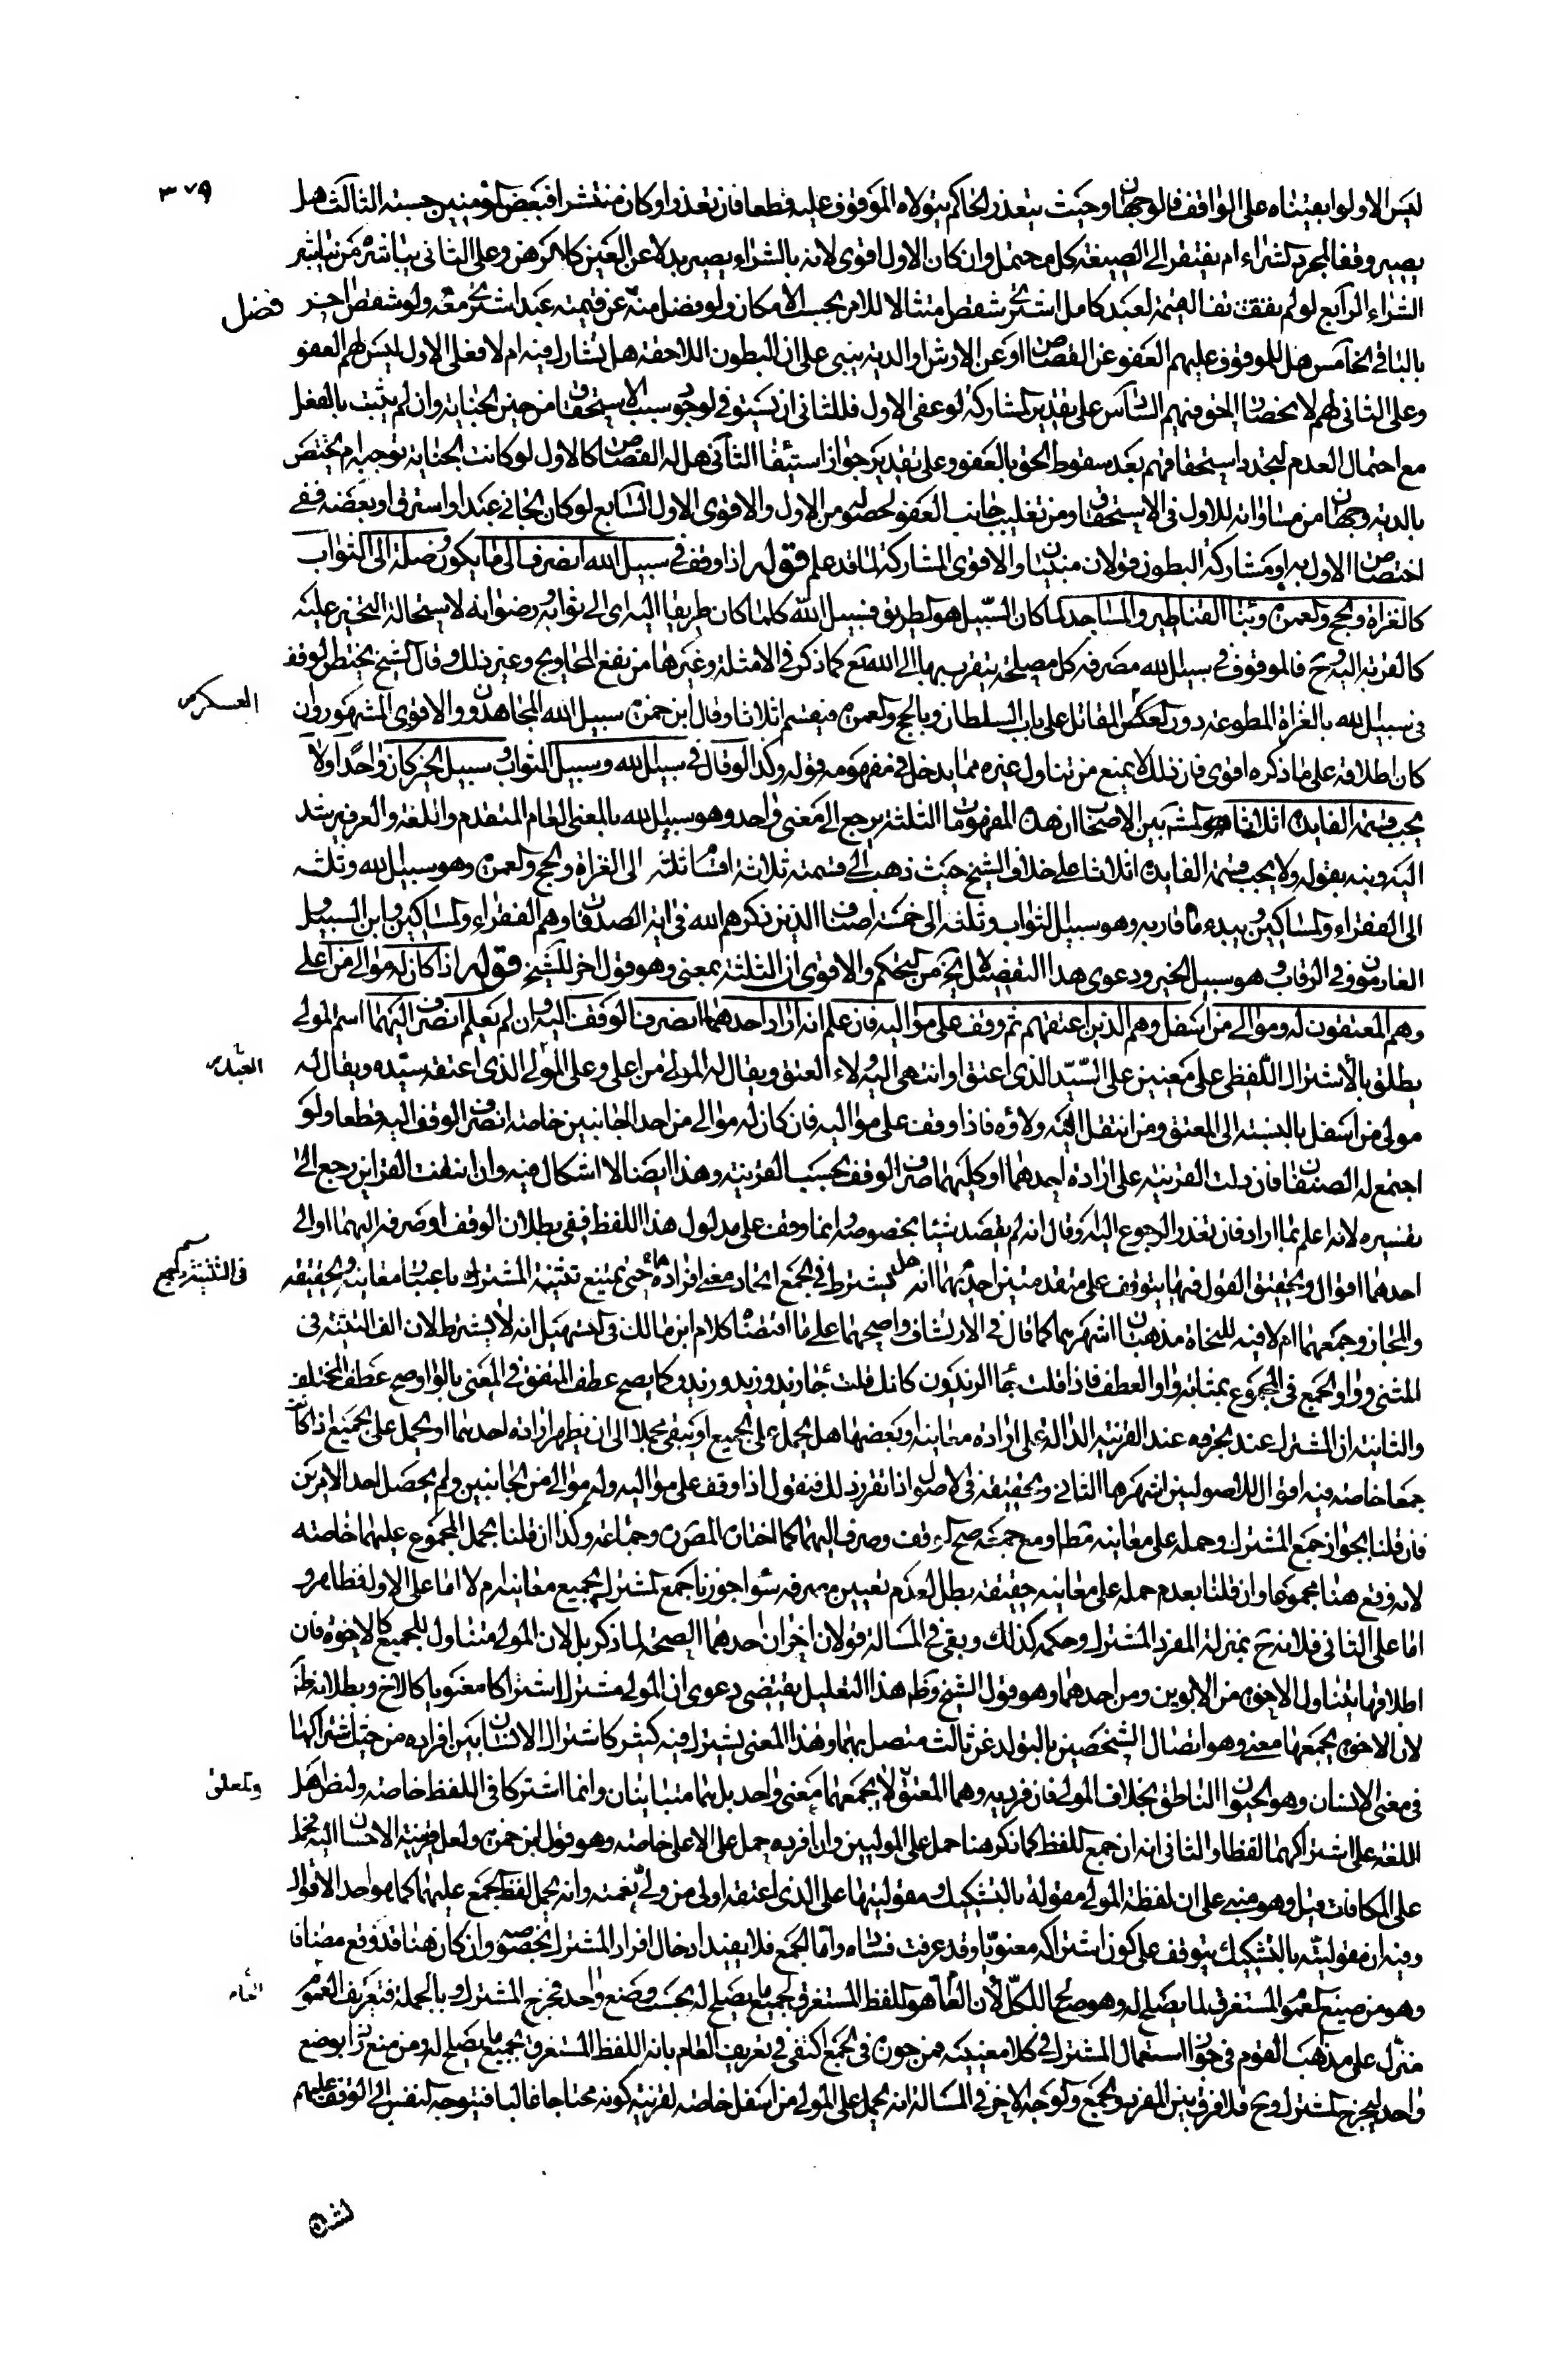 ٣٧٩
ليس الاول ولو ابقيناه على الواقف فالوجهان وحيث يتعذر الحاكم يتولاه الموقوف عليه قطعا فان تعذر او كان منتشرا فبعض المؤمنين حسبة الثالث هل
يصير وقفا بمجرد الشراء ام يفتقر الى الصيغة كل محتمل وان كان الاول اقوى لانه بالشراء يصير بدلا عن العين كالرهن وعلى الثاني يباشره من يباشر
الشراء الرابع لو لم يفقت القيمة لعبد كامل اشترى شقص امتثالا للامر بحسب الامكان ولو فضل منه عن قيمته عبد اشترى معه ولو شقص اخر
فضل
بالباقي الخامس هل للموقوف عليهم العفو عن القصاص او عن الارش او الدية يبنى على ان البطون اللاحقة هل تشارك فيه ام لا فعلى الاول ليس لهم العفو
وعلى الثاني لهم لانحصار الحق فيهم السادس على تقدير المشاركة لو عفى الاول فللثاني ان يستوفي لوجود سبب الاستحقاق من حين الجناية وان لم يثبت بالفعل
مع احتمال العدم لتجدد استحقاقهم بعد سقوط الحق بالعفو وعلى تقدير جواز استيفاء الثاني هل له القصاص كالاول لو كانت الجناية توجبه ام يختص
بالدية وجهان من مساواته للاول في الاستحقاق ومن تغليب جانب العفو لحصوله من الاول والاقوى الاول السابع لو كان الجاني عبدا واسترق او بعضه ففي
اختصاص الاول به او مشاركة البطون قولان مبنيان والاقوى المشاركة لما قد علم قوله اذا وقف في سبيل الله انصرف الى ما يكون وصلة الى الثواب
كالغزاة والحج والعمرة وبناء القناطير والمساجد لما كان السبيل هو الطريق فسبيل الله كلما كان طريقا اليه اى الى ثوابه ورضوانه لاستحالة التحيز عليه
كالقربة اليه وح فالموقوف في سبيل الله مصرفه كل مصلحة يتقرب بها الى الله تع كما ذكر في الامثلة وغيرها من نفع المحاويج وغير ذلك وقال الشيخ يختص الوقف
في سبيل الله بالغزاة المطوعة دون العسكر المقاتل على باب السلطان وبالحج والعمرة فيقسم اثلاثا وقال ابن حمزة سبيل الله المجاهدون والاقوى المشهور وان
العسكر
كان اطلاقه على ما ذكره اقوى فان ذلك لا يمنع من تناول غيره مما يدخل في مفهومه قوله وكذا لو قال في سبيل الله وسبيل الثواب وسبيل الخير كان واحدا ولا
يجب قسمة الفايدة اثلاثا هو المشهور بين الاصحاب ان هذه المفهومات الثلثة يرجع الى معنى واحد وهو سبيل الله بالمعنى العام المتقدم واللغة والعرف يرشد
اليه ونبه بقوله ولا يجب قسمة الفايدة اثلاثا على خلاف الشيخ حيث ذهب الى قسمته ثلاثة اقسام ثلثه الى الغزاة والحج والعمرة وهو سبيل الله وثلثه
الى الفقراء والمساكين ويبدء باقاربه وهو سبيل الثواب وثلثه الى خمسة اصناف الذين ذكرهم الله في اية الصدقات وهم الفقراء والمساكين وابن السبيل و
الغارمون وفي الرقاب وهو سبيل الخير ودعوى هذا التفصيل لا يخ من تحكم والاقوى ان الثلثة بمعنى وهو قول اخر للشيخ قوله اذا كان له موالى من اعلى
وهم المعتقون له وموالى من اسفل وهم الذين اعتقهم ثم وقف على مواليه فان علم انه اراد احدهما انصرف الوقف اليه وان لم يعلم انصرف اليهما اسم المولى
يطلق بالاشتراك اللفظي على معنيين على السيد الذي اعتق او انتهى اليه ولاء العتق ويقال له المولى من اعلى وعلى المولى الذي اعتقه سيده ويقال له
مولى من اسفل بالنسبة الى المعتق ومن انتقل اليه ولاؤه فاذا وقف على مواليه فان كان له موالى من احد الجانبين خاصة انصرف الوقف اليه قطعا ولو
اجتمع له الصنفان فان دلت القرينة على ارادة احدهما او كليهما صرف الوقف بحسب القرينة وهذا ايضا لا اشكال فيه وان انتفت القراين رجع الى
تفسيره لانه اعلم بما اراد فان تعذر الرجوع اليه وقال انه لم يقصد شيئا بخصوصه وانما وقف على مدلول هذا اللفظ ففي بطلان الوقف او صرفه اليهما او الى
احدهما اقوال وتحقيق القول فيها يتوقف على مقدمتين احديهما انه هل يشترط في الجمع اتحاد معنى افراده حتى يمتنع تثنية المشترك باعتبار معانيه والحقيقة
في التثنية والجمع
والمجاز وجمعهما ام لا فيه للنحاة مذهبان اشهرهما كما قال في الارتشاف واصحهما على ما اقتضاه كلام ابن مالك في التسهيل انه لا يشترط لان الف التثنية في
المثنى وواو الجمع في المجموع بمثابة واو العطف فاذا قلت جاء الزيدون كانك قلت جاء زيد وزيد وزيد وكما يصح عطف المتفق في المعنى بالواو صح عطف المختلف
والثانية ان المشترك عند تجرده عند القرينة الدالة على ارادة معانيه او بعضها هل يحمل على الجميع او يبقى مجملا الى ان يظهر ارادة احدهما او يحمل على الجميع اذا كان
جمعا خاصة فيه اقوال للاصوليين اشهرها الثاني وتحقيقه في الاصول اذا تقرر ذلك فنقول اذا وقف على مواليه وله موالى من الجانبين ولم يحصل احد الامرين
فان قلنا بجواز جمع المشترك وحمله على معانيه مطلقا او مع جمعه صح الوقف وصرف اليهما كما اختاره المص وجماعة وكذا ان قلنا بحمل المجموع عليهما خاصة
لانه وقع هنا مجموعا وان قلنا بعدم حمله على معانيه حقيقة بطل لعدم تعيين مصرفه سواء جوزنا جمع المشترك لجميع معانيه ام لا اما على الاول فظاهر و
اما على الثاني فلانه ح بمنزلة المفرد المشترك وحكمه كذلك وبقي في المسالة قولان اخران احدهما الصحة لما ذكر بل لان المولى متناول للجميع كالاخوة فان
اطلاقها يتناول الاخوة من الابوين ومن احدهما وهو قول الشيخ وظ هذا التعليل يقتضي دعوى ان المولى مشترك اشتراكا معنويا كالاخ وبطلانه ظ
لان الاخوة يجمعها معنى وهو اتصال الشخصين بالتولد عن ثالث متصل بهما وهذا المعنى يشترك فيه كثير كاشتراك الانسان بين افراده من حيث اشتراكها
في معنى الانسان وهو الحيوان الناطق بخلاف المولى فان فرديه وهما المعتق لا يجمعهما معنى واحد بل هما متباينان وانما اشتركا في اللفظ خاصة ولنص اهل
اللغة على اشتراكهما لفظا والثاني انه ان جمع اللفظ كما ذكر هنا حمل على الموليين وان افرده حمل على الاعلى خاصة وهو قول ابن حمزة ولعل قرينة الاحسان اليه
على المكافات قيل وهو مبني على ان لفظة المولى مقولة بالتشكيك ومقوليتها على الذي اعتقه اولى من ولي نعمته وانه يحمل لفظ الجمع عليهما كما هو احد الاقوال
وفيه ان مقوليته بالتشكيك يتوقف على كون اشتراكه معنويا وقد عرفت فساده واما الجمع فلا يفيد ادخال افراد المشترك بخصوصه وان كان هنا قد وقع مضافا
وهو من صيغ العموم المستغرق لما يصلح له وهو صالح للكل لان العام هو اللفظ المستغرق لجميع ما يصلح له بحسب وضع واحد فخرج المشترك وبالجملة فتعريف العموم
منزل على مذهب القوم في جواز استعمال المشترك في كلا معنييه فمن جوزه في الجمع اكتفى في تعريف العام بانه اللفظ المستغرق لجميع ما يصلح له ومن منع زاد بوضع
واحد ليخرج المشترك وح فلا فرق بين المفرد والجمع والوجه الاخر في المسالة انه يحمل على المولى من اسفل خاصة لقرينة كونه محتاجا غالبا فيتوجه النفس الى الوقف عليهم